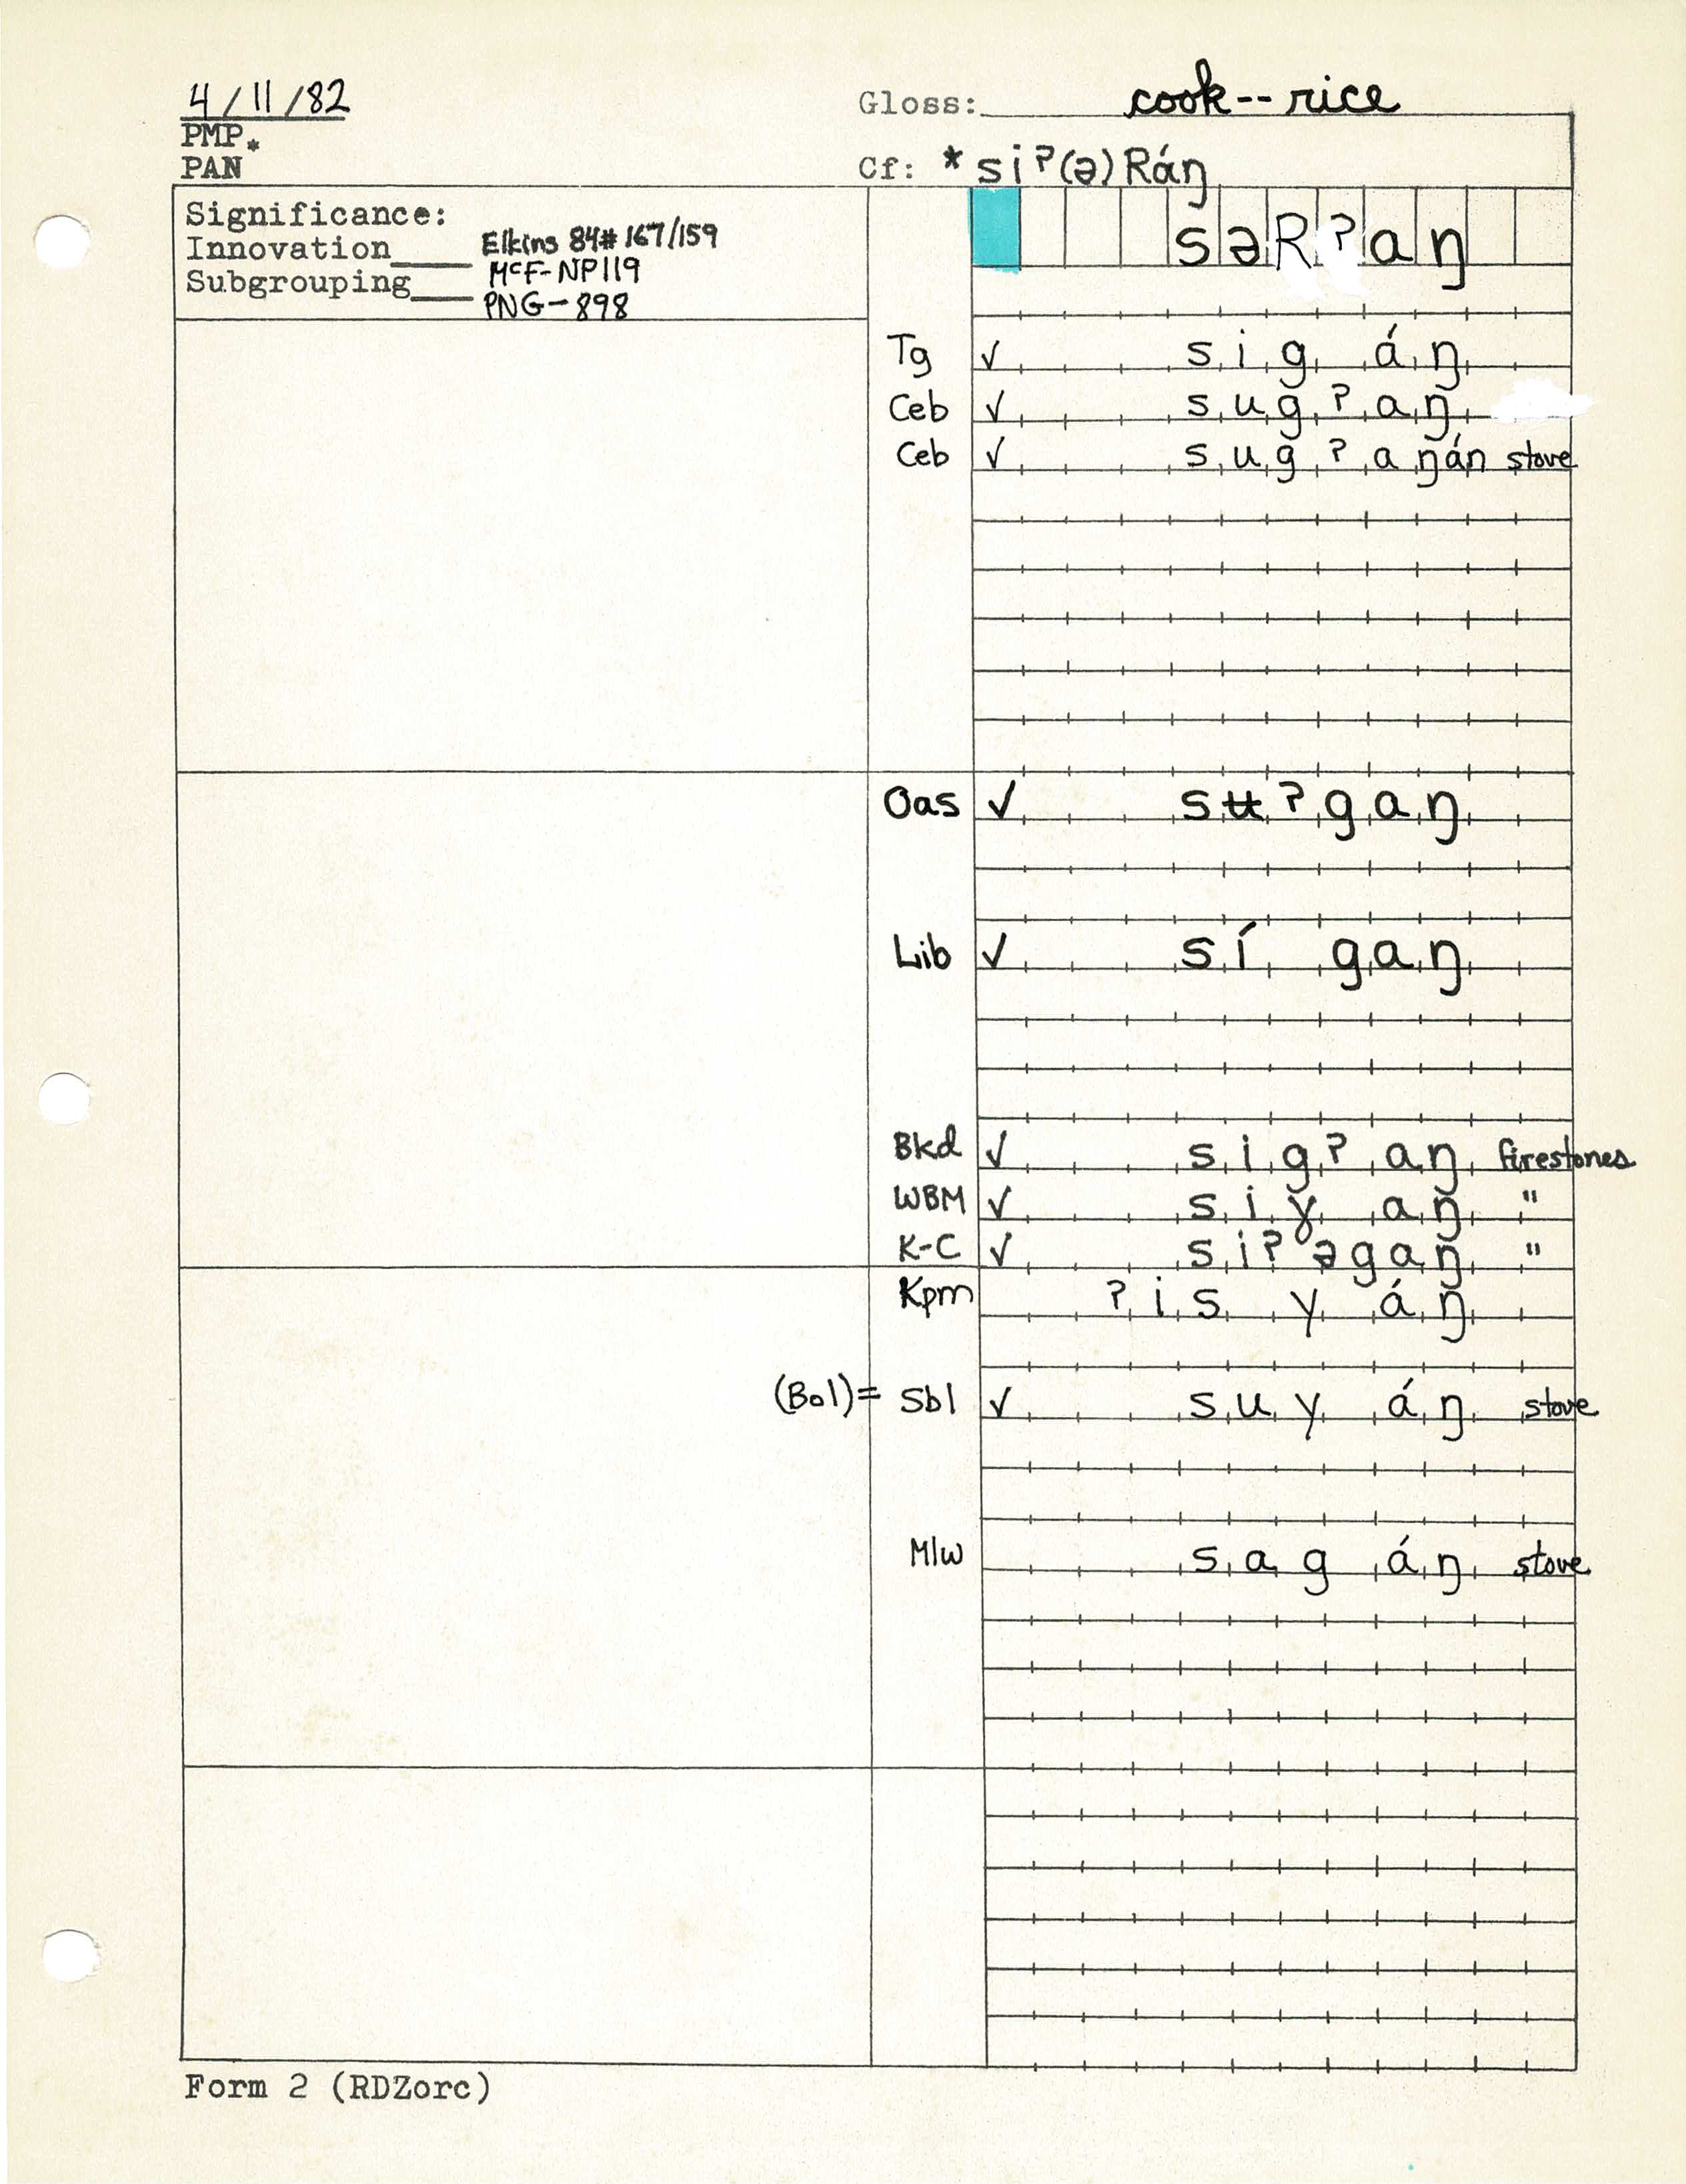 4/11/82
Gloss: cook--rice
PMP *
PAN
Cf: *siʔ(ə)Ráŋ
Significance:
Innovation____ Elkins 84# 167/159
McF-NP119
Subgrouping___
PNG-898
səRʔaŋ
Tg ✓ sigáŋ
Ceb ✓ sugʔaŋ
Ceb ✓ sugʔaŋán stove
Oas ✓ sʉʔgaŋ
Lib ✓ sígaŋ
Bkd ✓ sigʔaŋ firestones
WBM ✓ siɣaŋ "
K-C ✓ siʔəgaŋ "
Kpm ʔisyáŋ
(Bol)= Sbl ✓ suyáŋ stove
Mlw sagáŋ stove
Form 2 (RDZorc)